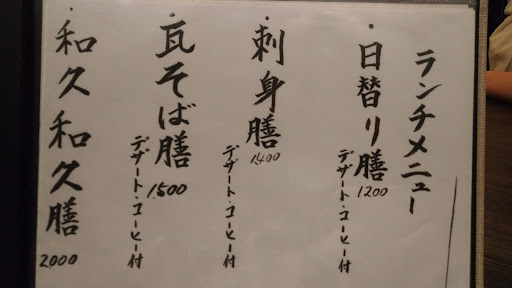 ランチメニュー
・日替り膳 1200
デザート・コーヒー付
・刺身膳 1,400
デザート・コーヒー付
・瓦そば膳 1,500
デザート・コーヒー付
・和久和久膳 2000